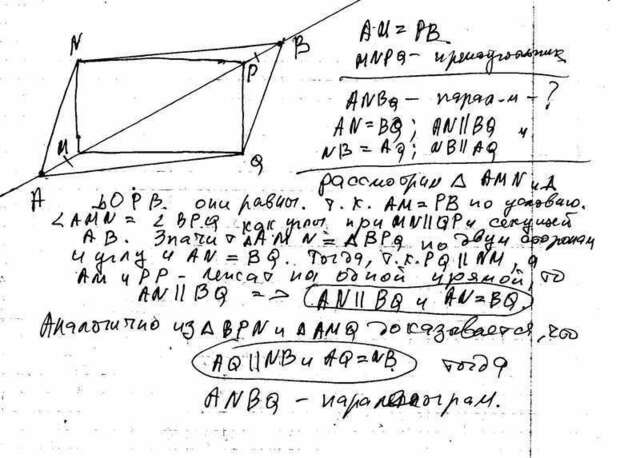 N
B
P
M
Q
A
AM = PB
MNPQ - прямоугольник
ANBQ - парал-м - ?
AN = BQ; AN || BQ и
NB = AQ; NB || AQ
рассмотрим △ AMN и △
BPQ. они равны. т.к. AM = PB по условию.
∠AMN = ∠BPQ как углы при MN || QP и секущей
AB. Значит △AMN = △BPQ по двум сторонам
и углу и AN = BQ. Тогда, т.к. PQ || NM, а
AM и PB - лежат на одной прямой, то
AN || BQ => AN || BQ и AN = BQ.
Аналогично из △ BPN и △ AMQ доказывается, что
AQ || NB и AQ = NB тогда
ANBQ - параллелограм.